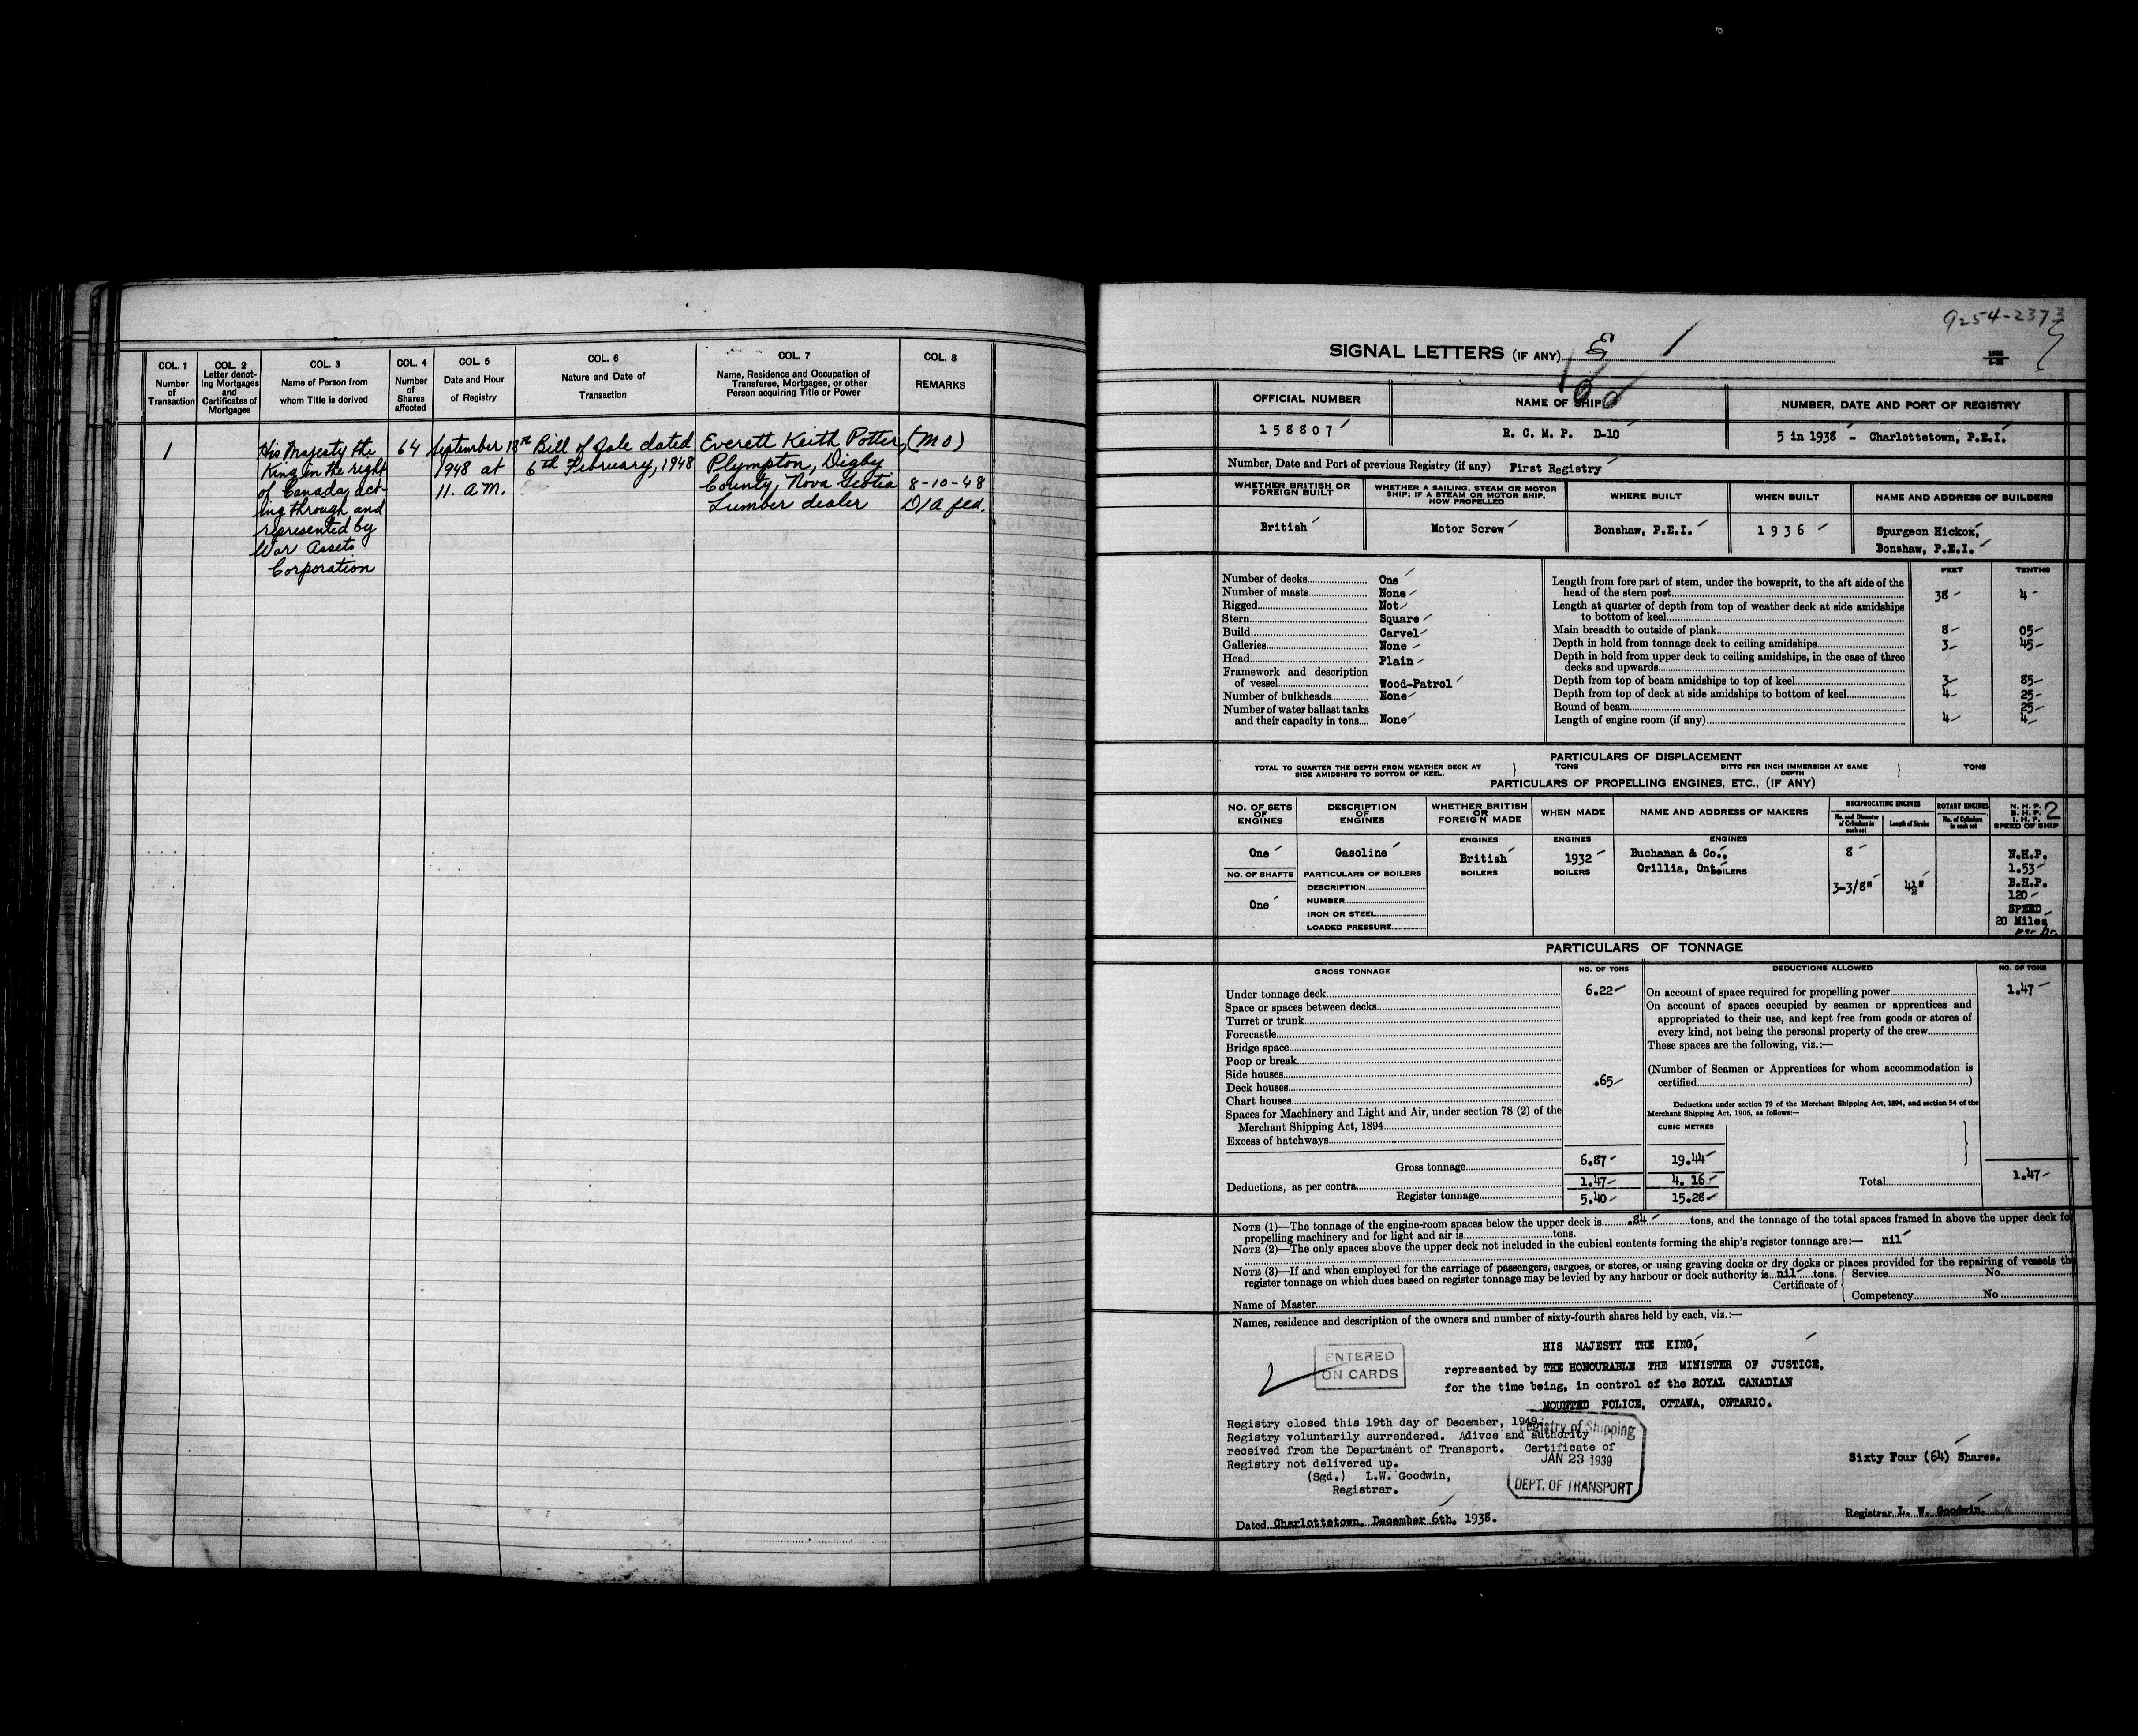 COL. 1
Number
of
Transaction
COL. 2
Letter denot-
ing Mortgages
and
Certificates of
Mortgages
COL. 3
Name of Person from
whom Title is derived
COL. 4
Number
of
Shares
affected
COL. 5
Date and Hour
of Registry
COL. 6
Nature and Date of
Transaction
COL. 7
Name, Residence and Occupation of
Transferee, Mortgagee, or other
Person acquiring Title or Power
COL. 8
REMARKS
1
His Majesty the
King in the right
of Canada, act-
ing through and
represented by
War Assets
Corporation
64
September 13th
1948 at
11. A.M.
Bill of Sale dated
6th February, 1948
Everett Keith Potter,
Plympton, Digby
County, Nova Scotia
Lumber dealer
(MO)
8-10-48
D/A fed.
9254-2373
SIGNAL LETTERS (IF ANY)
OFFICIAL NUMBER
158807
NAME OF SHIP
R. C. M. P. D-10
NUMBER, DATE AND PORT OF REGISTRY
5 in 1938 - Charlottetown, P.E.I.
Number, Date and Port of previous Registry (if any) First Registry
WHETHER BRITISH OR
FOREIGN BUILT
British
WHETHER A SAILING, STEAM OR MOTOR
SHIP; IF A STEAM OR MOTOR SHIP,
HOW PROPELLED
Motor Screw
WHERE BUILT
Bonshaw, P.E.I.
WHEN BUILT
1936
NAME AND ADDRESS OF BUILDERS
Spurgeon Hickox,
Bonshaw, P.E.I.
Number of decks One
Number of masts None
Rigged Not
Stern Square
Build Carvel
Galleries None
Head Plain
Framework and description
of vessel Wood-Patrol
Number of bulkheads None
Number of water ballast tanks
and their capacity in tons None
FEET TENTHS
Length from fore part of stem, under the bowsprit, to the aft side of the
head of the stern post 38 4
Length at quarter of depth from top of weather deck at side amidships
to bottom of keel
Main breadth to outside of plank 8 05
Depth in hold from tonnage deck to ceiling amidships 3 45
Depth in hold from upper deck to ceiling amidships, in the case of three
decks and upwards
Depth from top of beam amidships to top of keel 3 85
Depth from top of deck at side amidships to bottom of keel 4 25
Round of beam 25
Length of engine room (if any) 4 4
PARTICULARS OF DISPLACEMENT
TOTAL TO QUARTER THE DEPTH FROM WEATHER DECK AT
SIDE AMIDSHIPS TO BOTTOM OF KEEL.
TONS
DITTO PER INCH IMMERSION AT SAME
DEPTH
TONS
PARTICULARS OF PROPELLING ENGINES, ETC., (IF ANY)
NO. OF SETS
OF
ENGINES
One
NO. OF SHAFTS
One
DESCRIPTION
OF
ENGINES
Gasoline
PARTICULARS OF BOILERS
DESCRIPTION
NUMBER
IRON OR STEEL
LOADED PRESSURE
WHETHER BRITISH
OR
FOREIGN MADE
ENGINES
British
BOILERS
WHEN MADE
ENGINES
1932
BOILERS
NAME AND ADDRESS OF MAKERS
ENGINES
Buchanan & Co.,
Orillia, Ont.
BOILERS
RECIPROCATING ENGINES
No. and Diameter
of Cylinders in
each set
8
3-3/8"
Length of Stroke
4½"
ROTARY ENGINES
No. of Cylinders
in each set
N. H. P. 2
B. H. P.
I. H. P.
SPEED OF SHIP
N.H.P.
1.53
B.H.P.
120
SPEED
20 Miles
per hr.
PARTICULARS OF TONNAGE
GROSS TONNAGE
NO. OF TONS
Under tonnage deck 6.22
Space or spaces between decks
Turret or trunk
Forecastle
Bridge space
Poop or break
Side houses
Deck houses .65
Chart houses
Spaces for Machinery and Light and Air, under section 78 (2) of the
Merchant Shipping Act, 1894
Excess of hatchways
Gross tonnage 6.87 19.44
Deductions, as per contra 1.47 4. 16
Register tonnage 5.40 15.28
DEDUCTIONS ALLOWED
NO. OF TONS
On account of space required for propelling power 1.47
On account of spaces occupied by seamen or apprentices and
appropriated to their use, and kept free from goods or stores of
every kind, not being the personal property of the crew
These spaces are the following, viz.:—
(Number of Seamen or Apprentices for whom accommodation is
certified)
Deductions under section 79 of the Merchant Shipping Act, 1894, and section 54 of the
Merchant Shipping Act, 1906, as follows:—
CUBIC METRES
Total 1.47
NOTE (1)—The tonnage of the engine-room spaces below the upper deck is .84 tons, and the tonnage of the total spaces framed in above the upper deck for
propelling machinery and for light and air is tons.
NOTE (2)—The only spaces above the upper deck not included in the cubical contents forming the ship's register tonnage are:— nil
NOTE (3)—If and when employed for the carriage of passengers, cargoes, or stores, or using graving docks or dry docks or places provided for the repairing of vessels the
register tonnage on which dues based on register tonnage may be levied by any harbour or dock authority is nil tons.
Certificate of { Service No.
Competency No
Name of Master
Names, residence and description of the owners and number of sixty-fourth shares held by each, viz.:—
ENTERED
ON CARDS
HIS MAJESTY THE KING,
represented by THE HONOURABLE THE MINISTER OF JUSTICE,
for the time being, in control of the ROYAL CANADIAN
MOUNTED POLICE, OTTAWA, ONTARIO.
Registry closed this 19th day of December, 1949.
Registry voluntarily surrendered. Adivce and authority
received from the Department of Transport. Certificate of
Registry not delivered up.
(Sgd.) L.W. Goodwin,
Registrar.
Registry of Shipping
JAN 23 1939
DEPT. OF TRANSPORT
Sixty Four (64) Shares.
Dated Charlottetown, December 6th, 1938.
Registrar L. W. Goodwin.